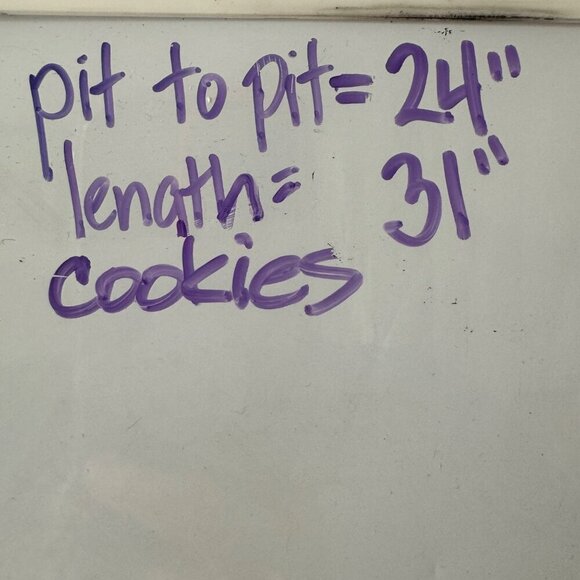 pit to pit= 24"
length= 31"
cookies